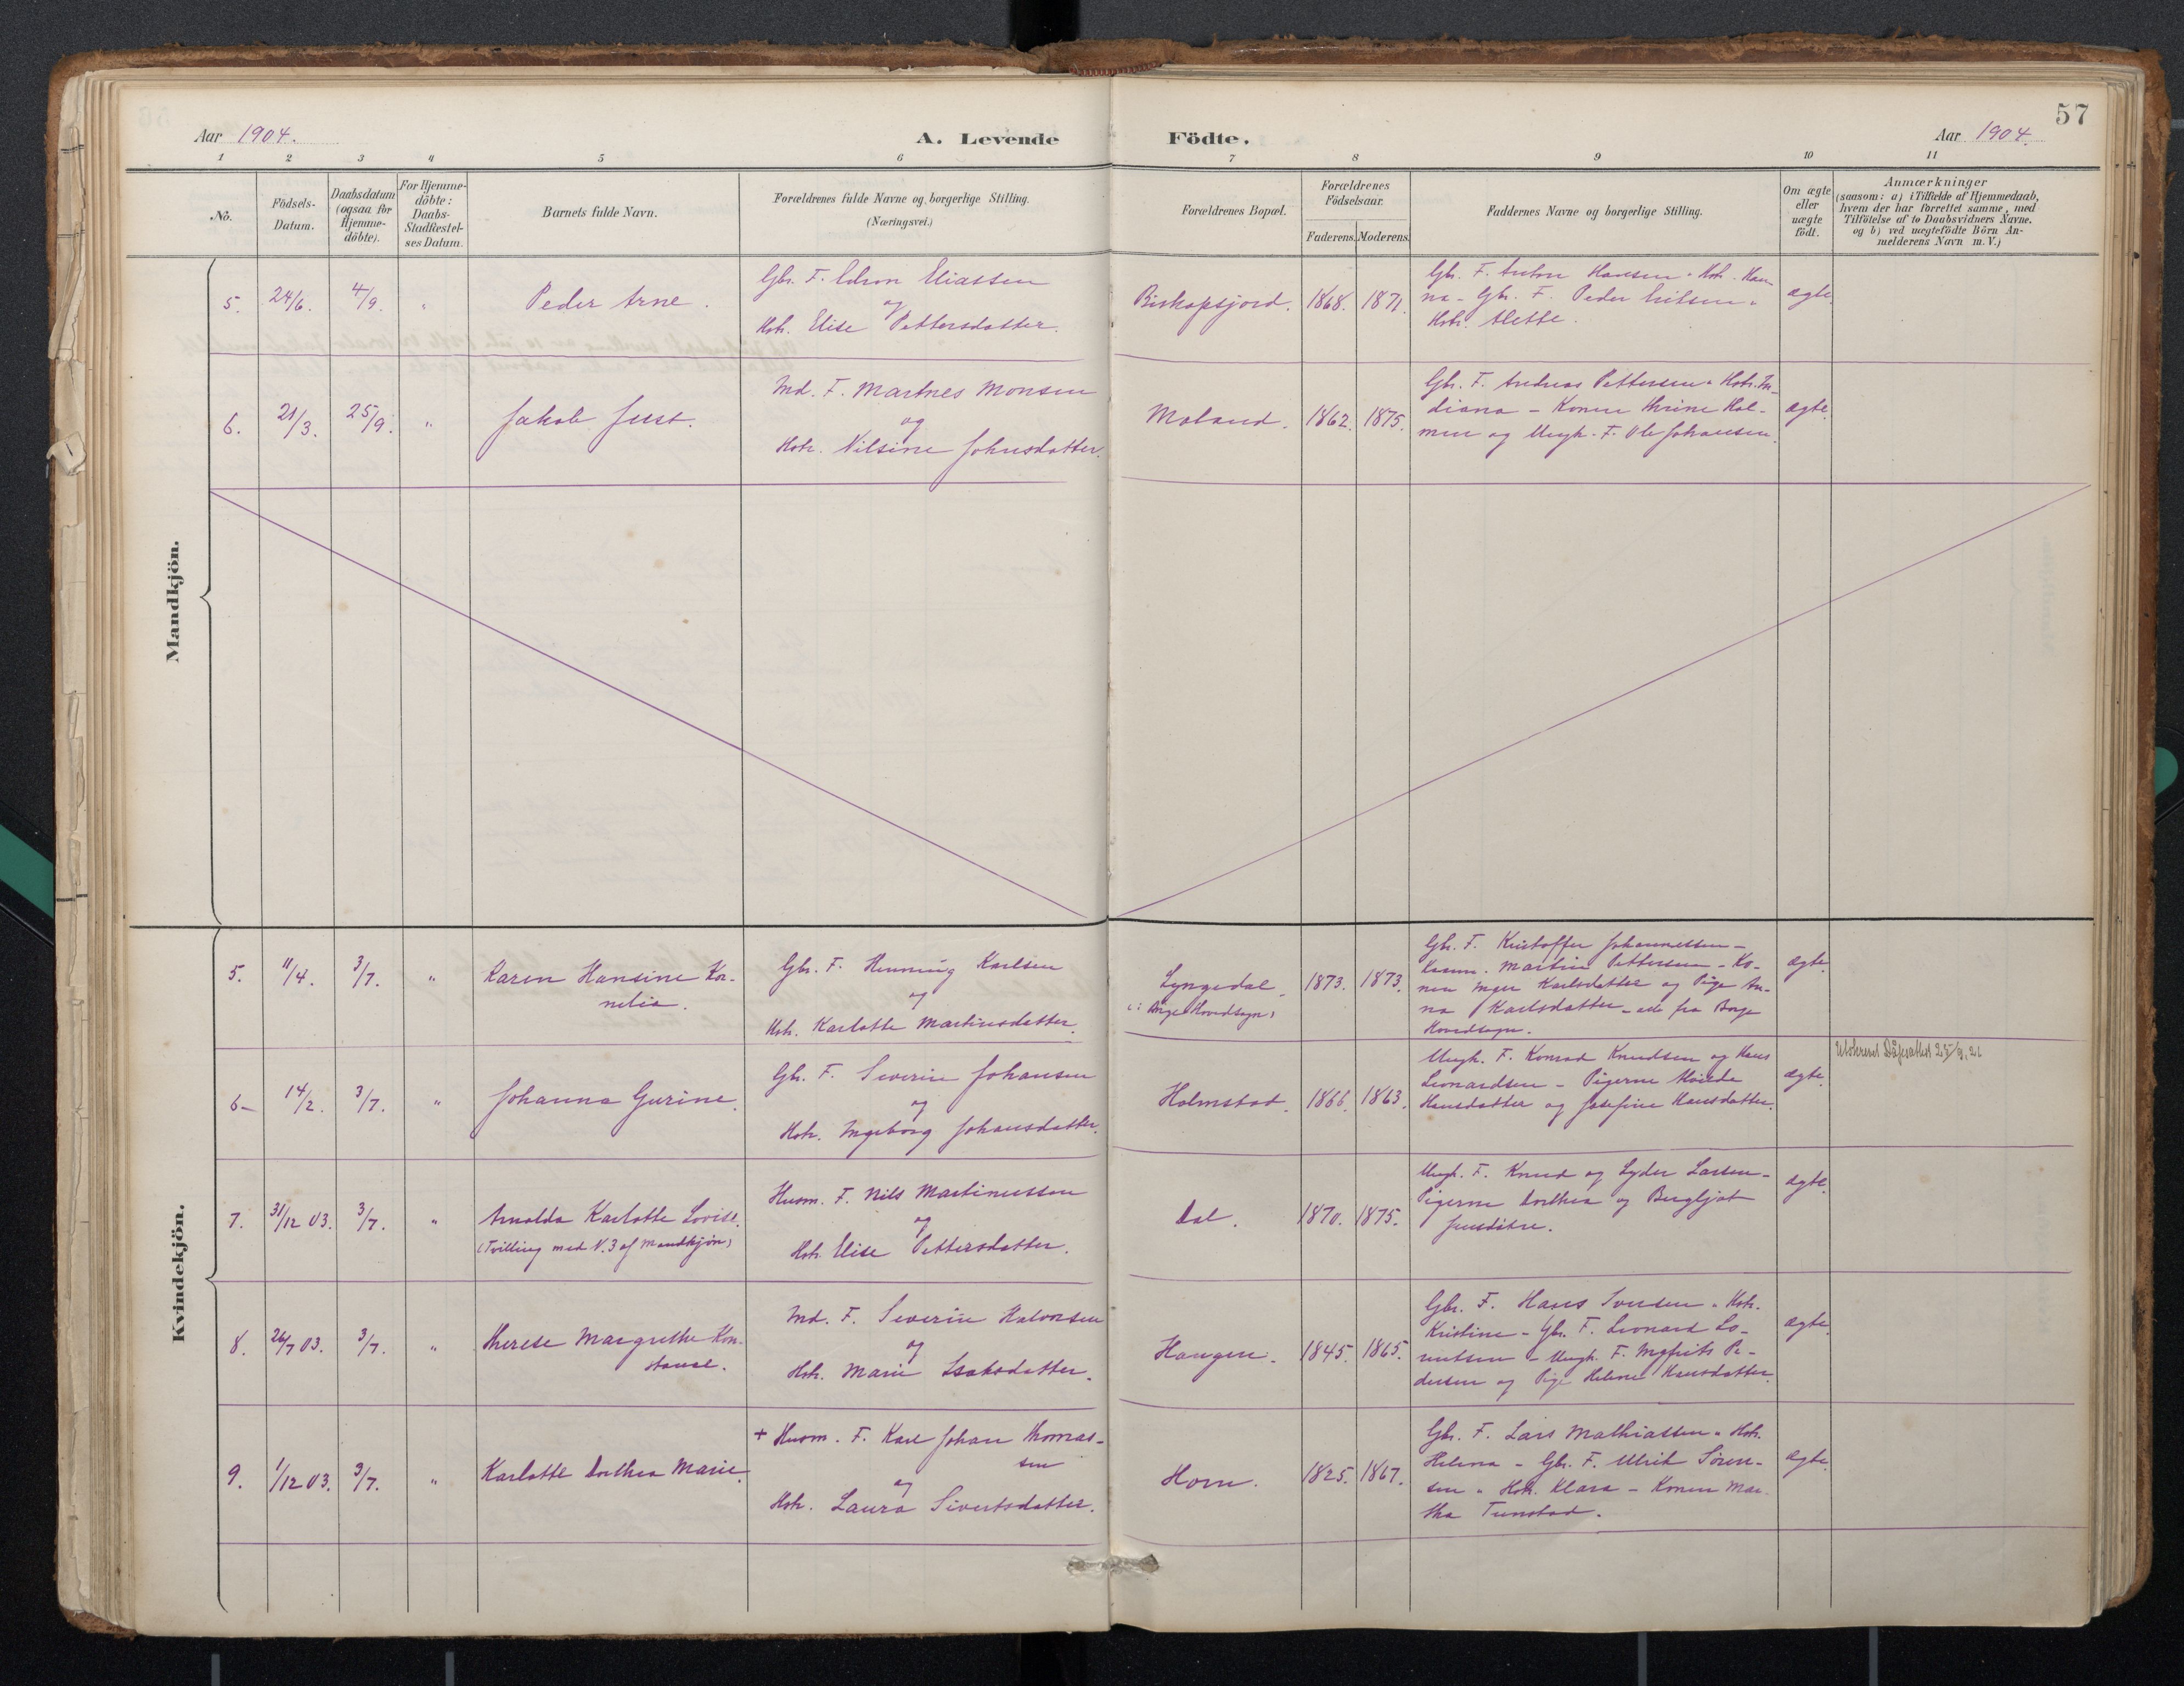 57
Aar 1904.
A. Levende Födte.
Aar 1904.
1 2 3 4 5 6 7 8 9 10 11
No.
Födsels-
Datum.
Daabsdatum
(ogsaa for
Hjemme-
döbte).
For Hjemme-
döbte:
Daabs-
Stadfæstel-
ses Datum.
Barnets fulde Navn.
Forældrenes fulde Navne og borgerlige Stilling.
(Næringsvei.)
Forældrenes Bopæl.
Forældrenes
Födselsaar.
Faderens. Moderens.
Faddernes Navne og borgerlige Stilling.
Om ægte
eller
uægte
födt.
Anmærkninger
(saasom: a) i Tilfælde af Hjemmedaab,
hvem der har forrettet samme, med
Tilföielse af to Daabsvidners Navne.
og b) ved uægtefödte Börn An-
melderens Navn m. V.)
Mandkjön.
5. 24/6. 4/9. " Peder Arne.
Gbr. F. Edron Eliassen
og
Hstr. Elise Pettersdatter.
Biskopsjord. 1868. 1871.
Gbr. F. Anton Hansen " Hstr. Han-
na - Gbr. F. Peder Nilsen "
Hstr. Alette.
ægte.
6. 21/3. 25/9. " Jakob Just.
Ind. F. Martnes Monsen
og
Hstr. Nilsine Johnsdatter.
Moland. 1862. 1875.
Gbr. F. Andreas Pettersen " Hstr. In-
diana - Konen Thrine Hol-
men og Ungk. F. Ole Johansen.
ægte.
Kvindekjön.
5. 11/4. 3/7. " Karen Hansine Kor-
nelia.
Gbr. F. Henning Karlsen
og
Hstr. Karlotte Martinusdatter.
Lyngedal.
(: Borge Hovedsogn:)
1873. 1873.
Gbr. F. Kristoffer Johannessen -
Martin Pettersen - Ko-
nen Inger Karlsdatter og Pige An-
na Karlsdatter - alle fra Borge
Hovedsogn.
ægte.
6- 14/2. 3/7. " Johanna Gurine.
Gbr. F. Severin Johansen
og
Hstr. Ingeborg Johansdatter.
Holmstad. 1866. 1863.
Ungk. F. Konrad Knudsen og Hans
Leonardsen - Pigerne
Hansdatter og Josefine Hansdatter.
ægte.
Utskrevet Dåpsattest 25/9.21
7. 31/12 03. 3/7. " Arnolda Karlotte Lovise.
(Tvilling med N. 3 af Mandkjön)
Husm. F. Nils Martinussen
og
Hstr. Elise Pettersdatter.
Dal. 1870. 1875.
Ungk. F. Knud og Lyder Larsen -
Pigerne Dorthea og Bergljot
Jensdötre.
ægte.
8. 26/7 03. 3/7. " Therese Margrethe Kon-
stanse.
Ind. F. Severin Halvorsen
og
Hstr. Marie Isaksdatter.
Haugen. 1845. 1865.
Gbr. F. Hans Iversen " Hstr.
Kristine - Gbr. F. Leonard Lo-
rentsen - Ungk. F. Ingfrits Pe-
dersen og Pige Helene Hansdatter.
ægte.
9. 1/12 03. 3/7. " Karlotte Dorthea Marie.
+ Husm. F. Karl Johan Thomas-
sen
og
Hstr. Laura Sivertsdatter.
Horn. 1825. 1867.
Gbr. F. Lars Mathiassen " Hstr.
Helena - Gbr. F. Ulrik Sören-
sen " Hstr. Klara - Konen Mar-
tha Tunstad.
ægte.